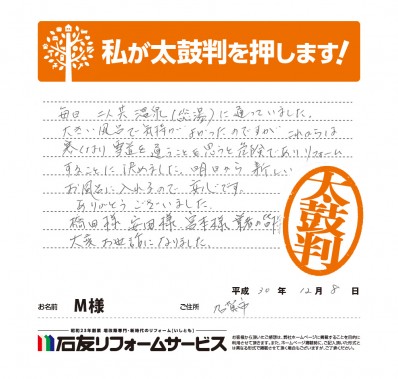 私が太鼓判を押します!
毎日 二人共 温泉(銭湯)に通っていました。
大きい風呂で気持が よかったのですが これからは
寒くなり 雪道を通うことを思うと危険であり、リフォーム
することに決めました。明日から 新しい
お風呂に入れるので 楽しみです。
ありがとうございました。
橋田様 安田様、宮本様、業者の皆様
大変お世話になりました。
太鼓判
平成 30 年 12 月 8 日
お名前 M様 ご住所
昭和23年創業 増改築専門・新時代のリフォーム[いしとも]
石友リフォームサービス